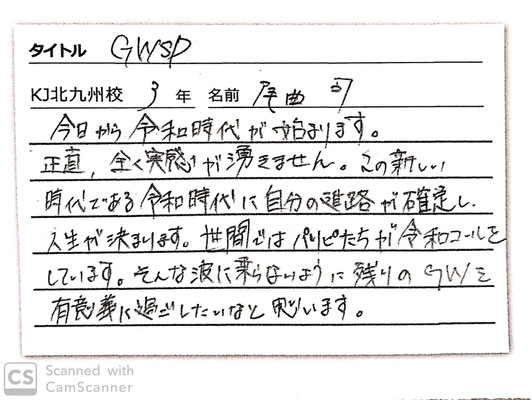 タイトル GWSP
KJ北九州校 3年 名前 尾曲
今日から令和時代が始まります。
正直、全く実感が湧きません。この新しい
時代である令和時代に自分の進路が確定し、
人生が決まります。世間ではパリピたちが令和コールを
しています。そんな波に乗らないように残りのGWを
有意義に過ごしたいなと思います。
CS Scanned with
CamScanner